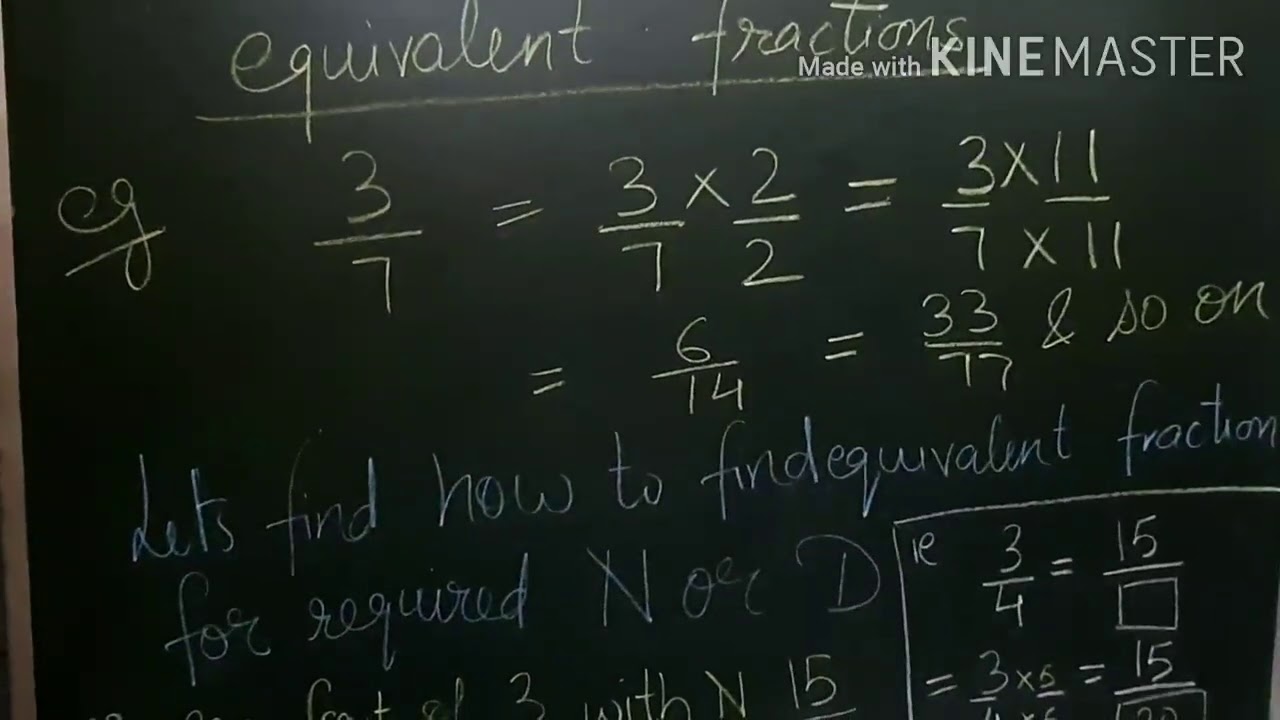 equivalent fractions
Made with KINEMASTER
eg 3/7 = 3/7 × 2/2 = 3 × 11 / 7 × 11
= 6/14 = 33/77 & so on
Lets find how to find equivalent fraction
for required N or D
ie 3/4 = 15/□
3 with N 15
= 3×5 = 15